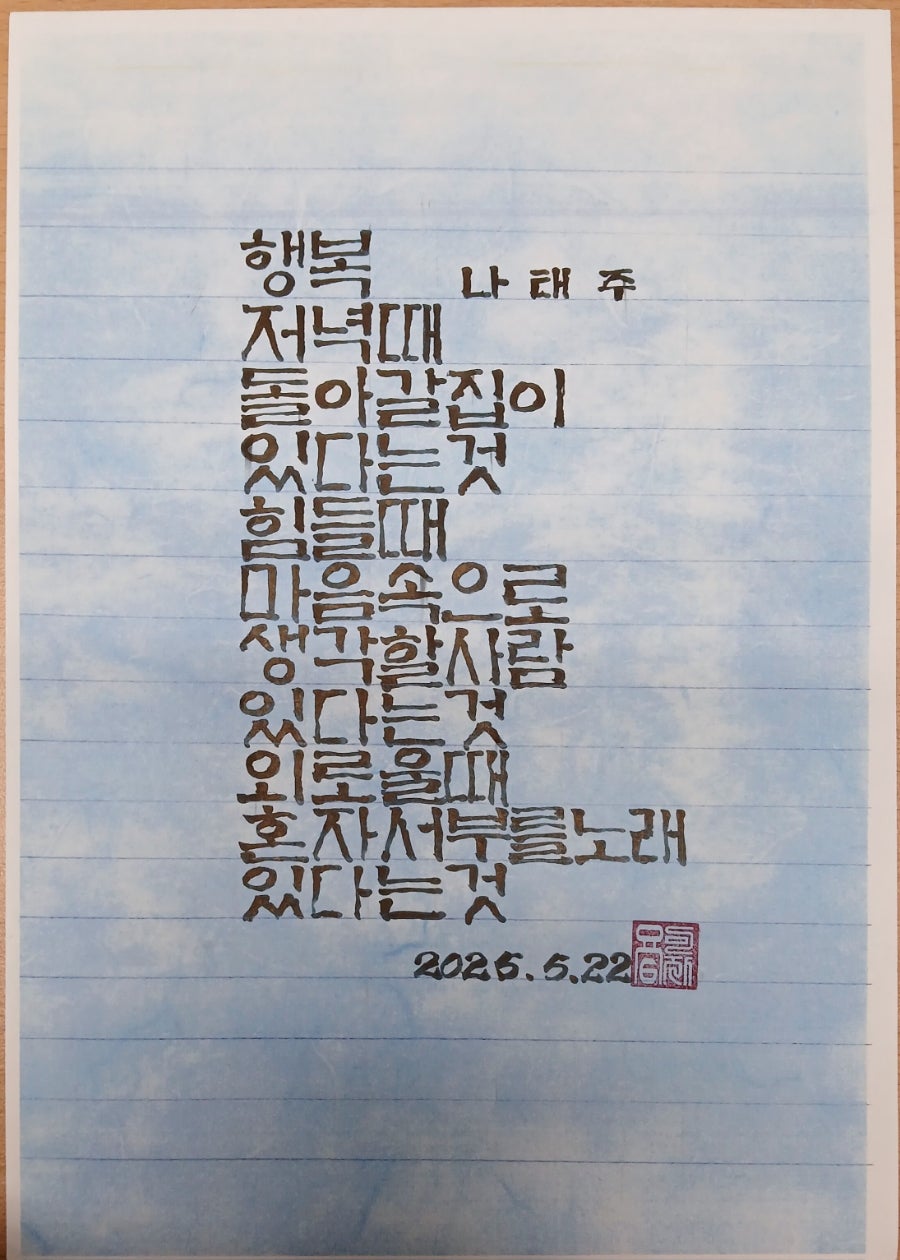 행복 나태주
저녁때
돌아갈집이
있다는것
힘들때
마음속으로
생각할사람
있다는것
외로울때
혼자서부를노래
있다는것
2025.5.22